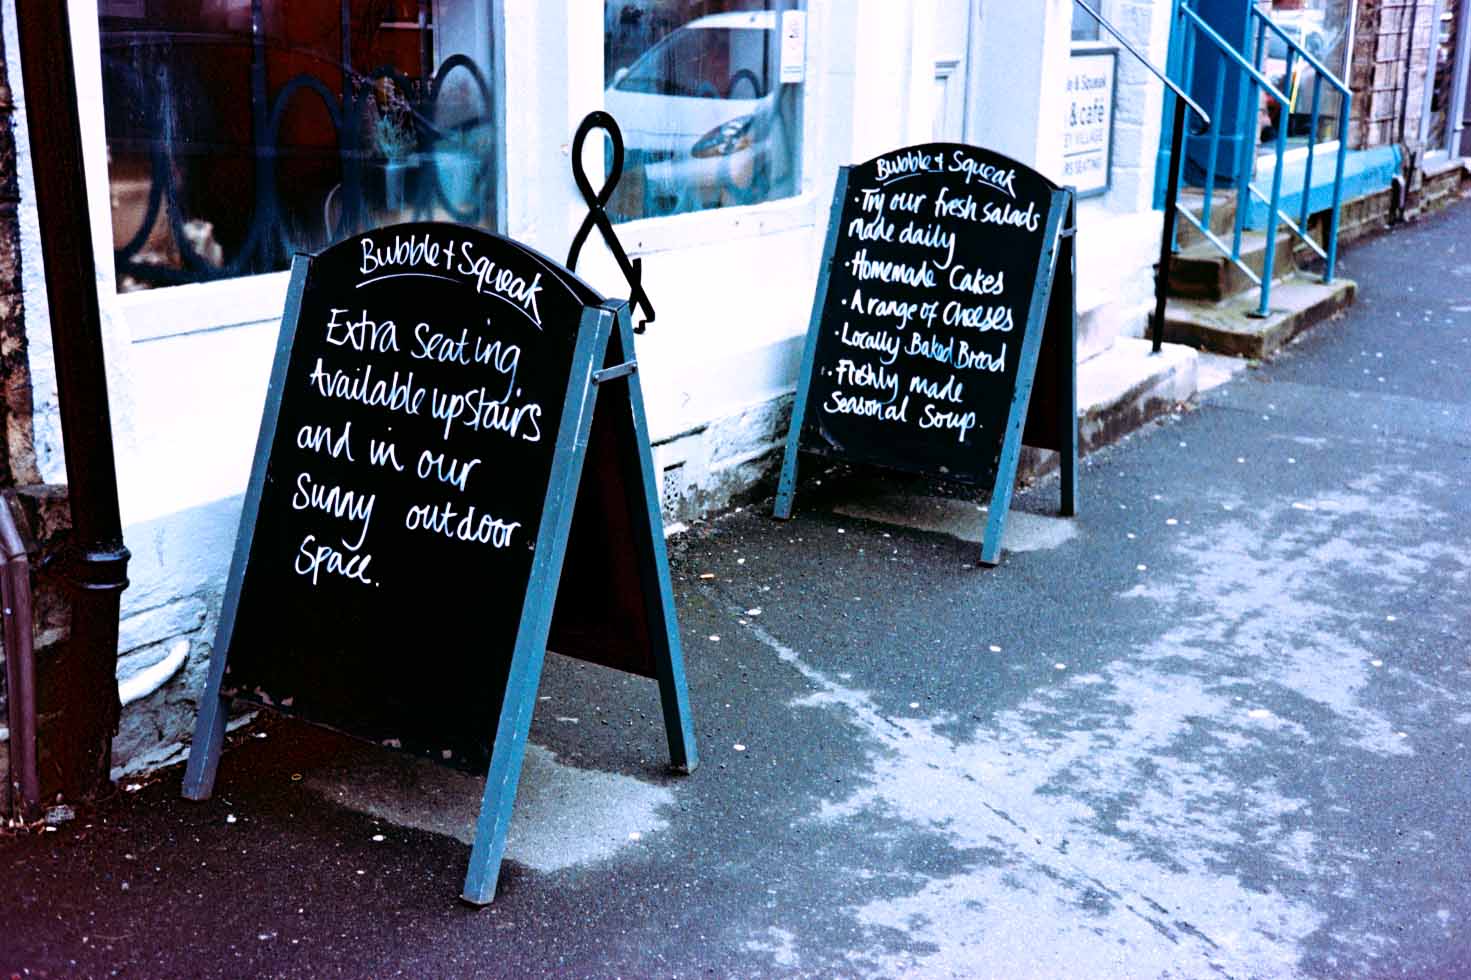 Bubble + Squeak
Extra Seating
Available upstairs
and in our
Sunny outdoor
Space.
Bubble + Squeak
• Try our fresh salads
made daily
• Homemade Cakes
• A range of Cheeses
• Locally Baked Bread
• Freshly made
Seasonal Soup.
& Squeak
& café
VILLAGE
SEATING